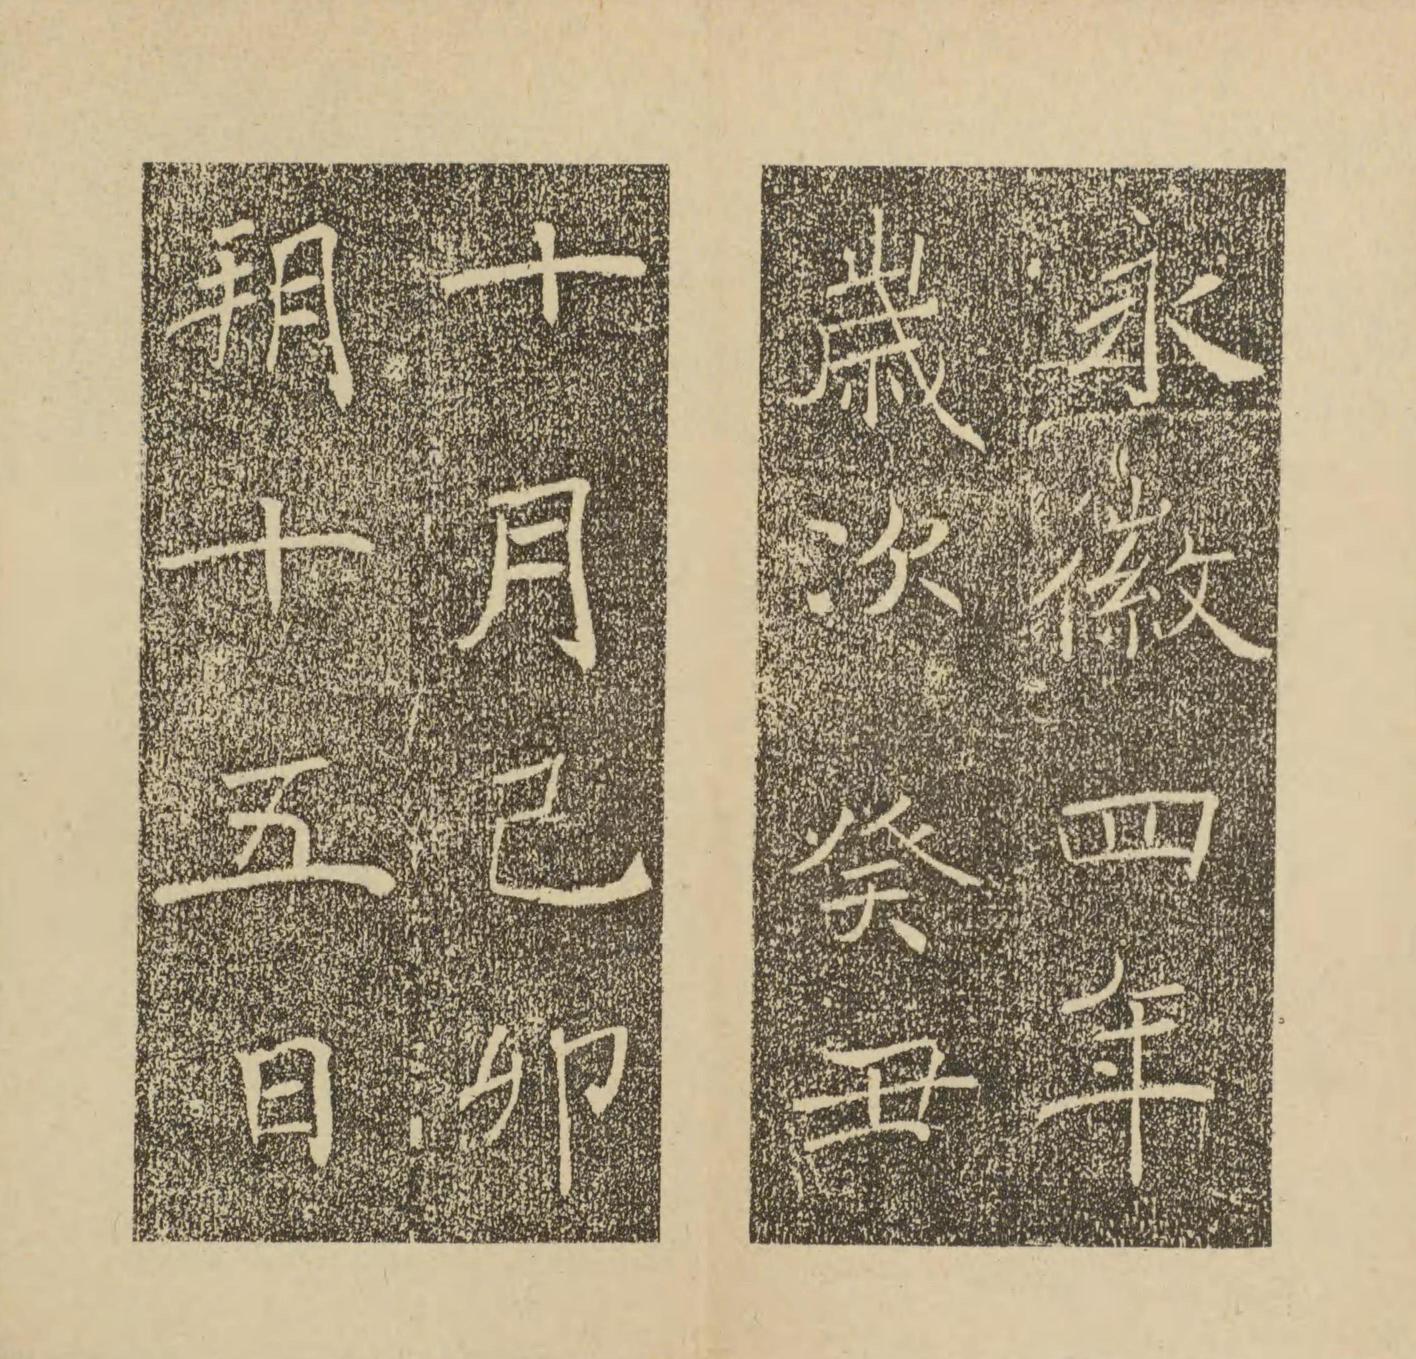 永徽四年
歲次癸丑
十月己卯
朔十五日